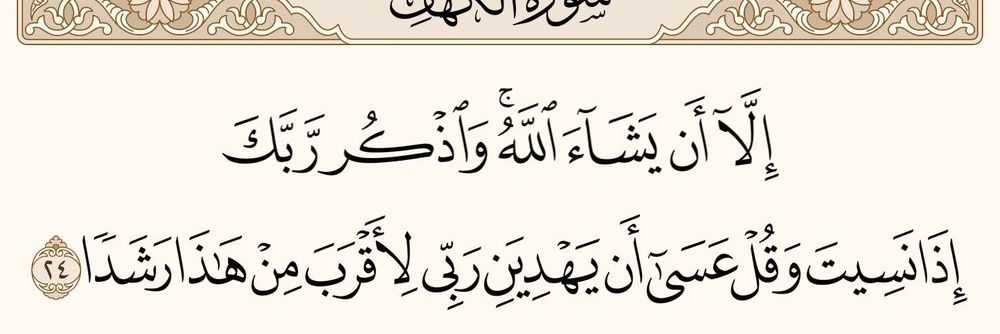 سورة الكهف
إِلَّآ أَن يَشَآءَ ٱللَّهُ ۚ وَٱذۡكُر رَّبَّكَ
إِذَا نَسِيتَ وَقُلۡ عَسَىٰٓ أَن يَهۡدِيَنِ رَبِّي لِأَقۡرَبَ مِنۡ هَـٰذَا رَشَدٗا ٢٤